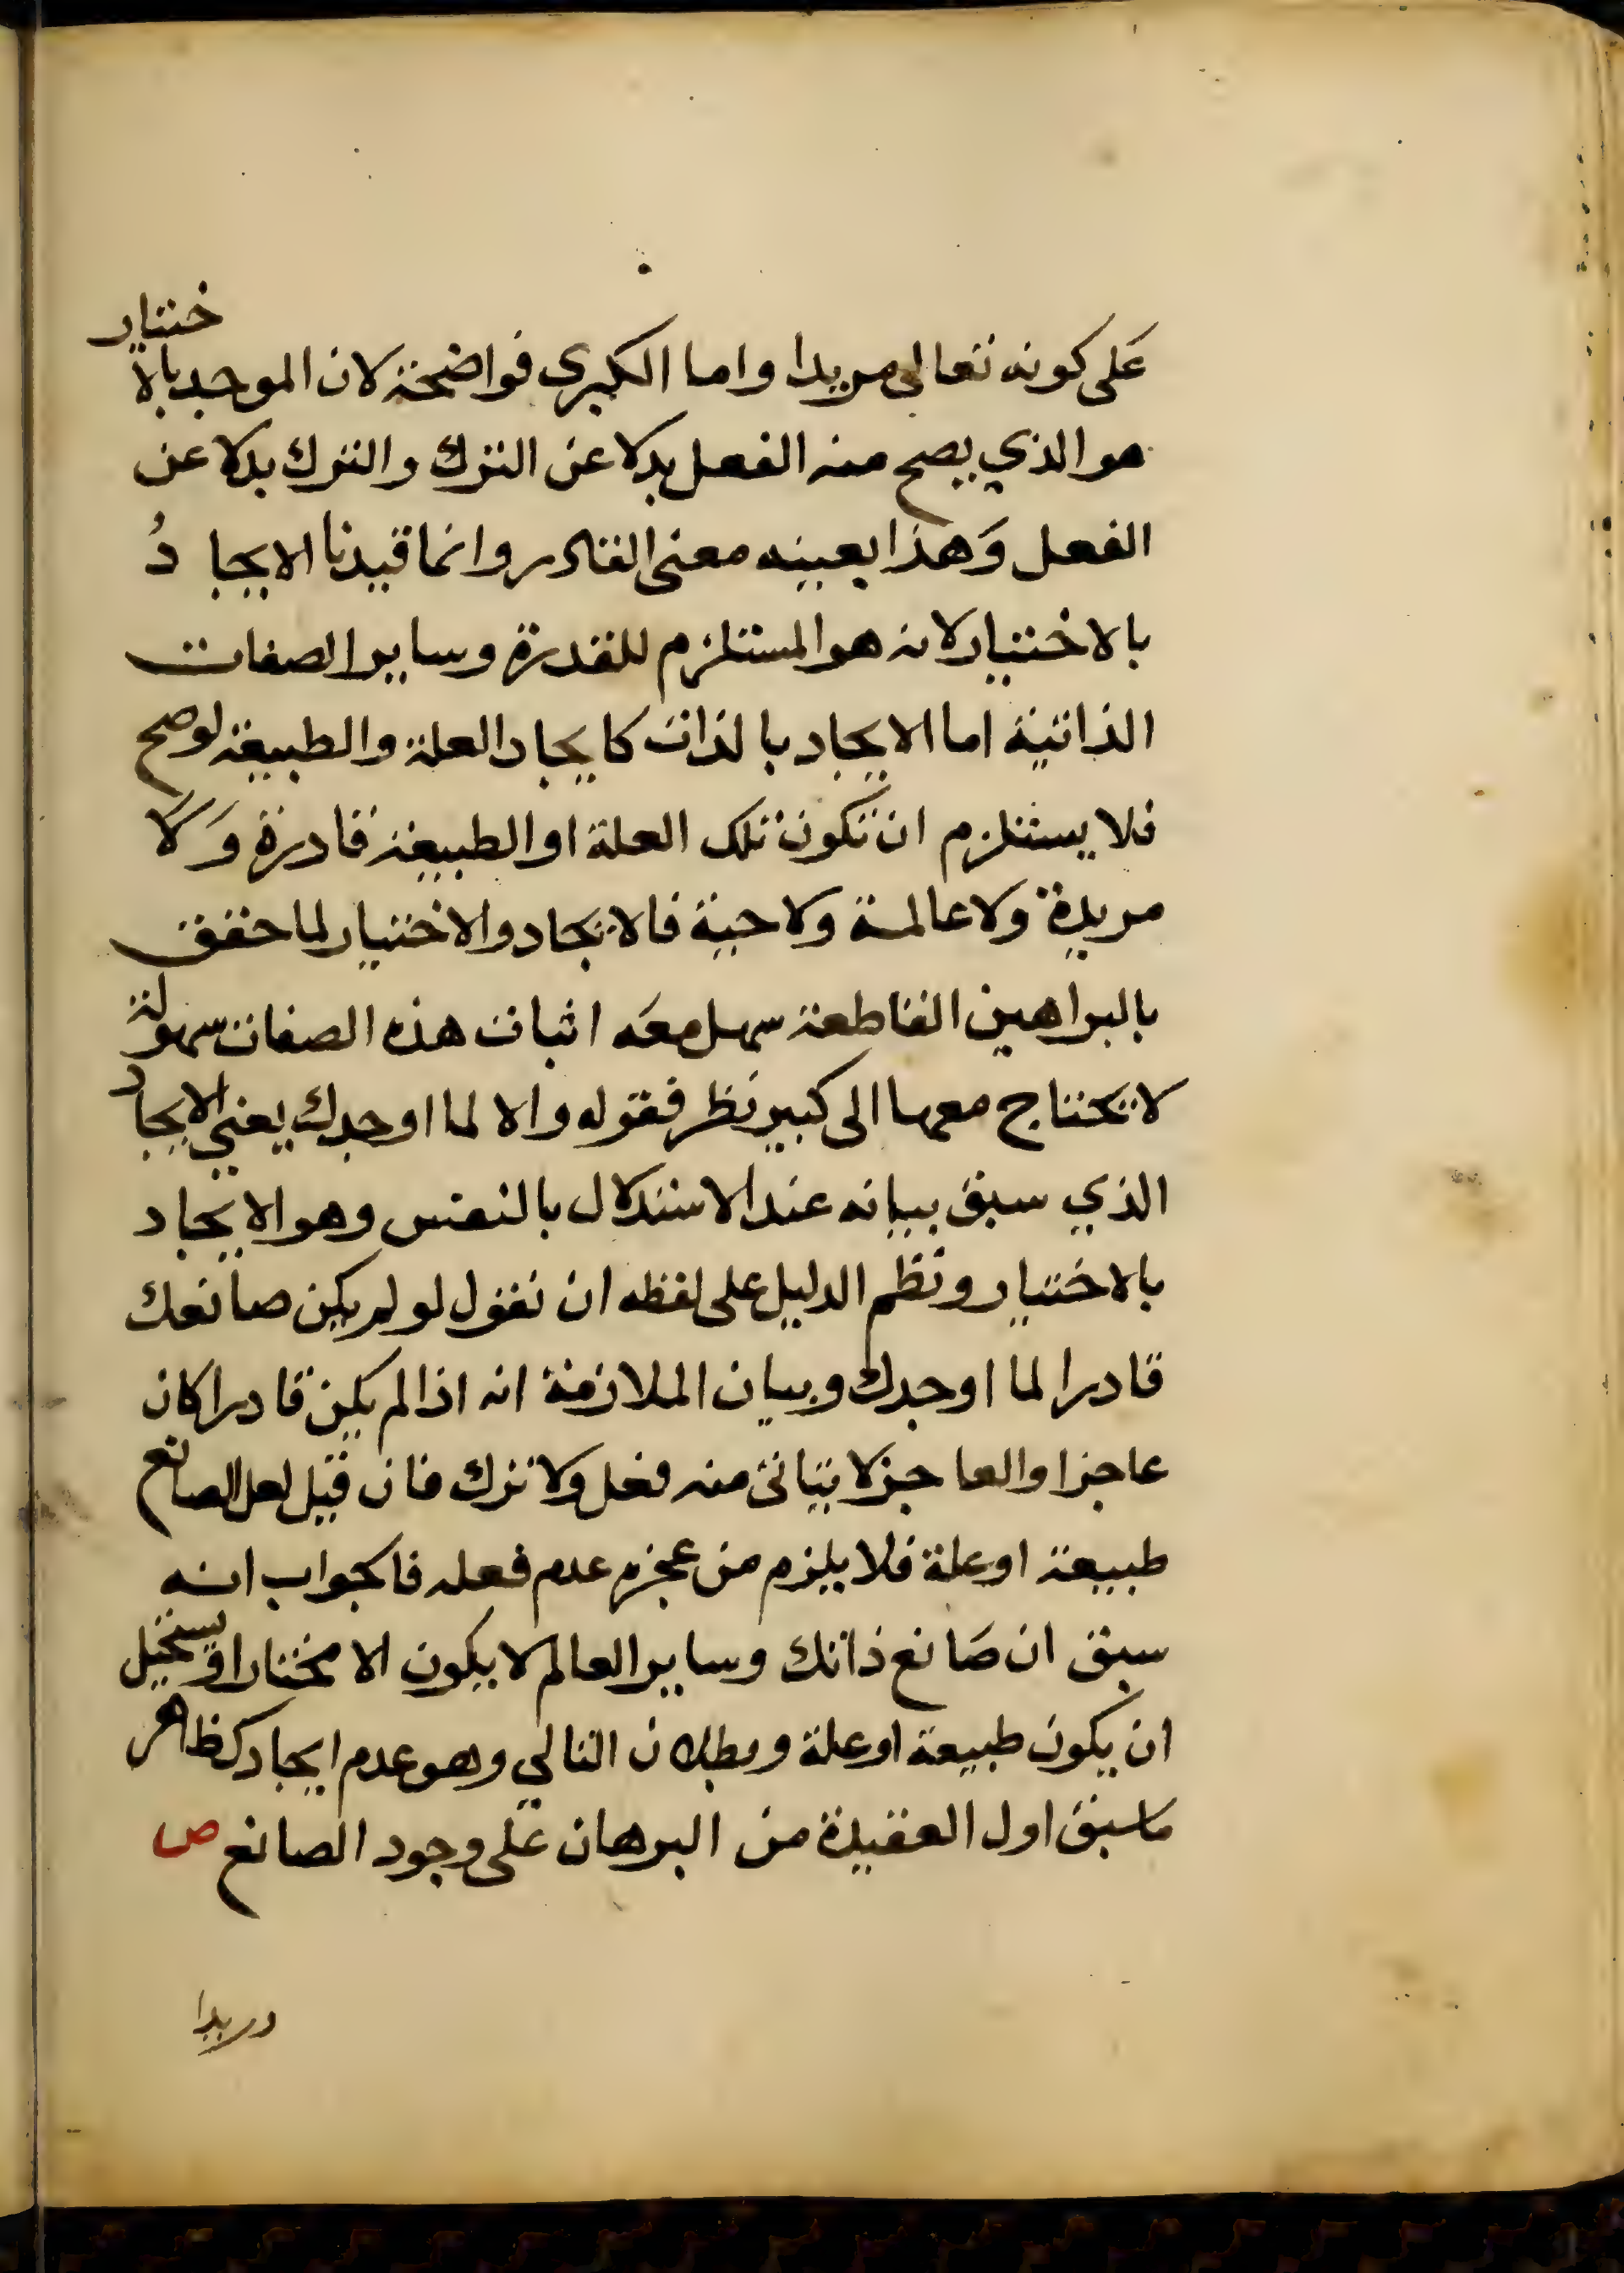 على كونه تعالى مريدا واما الكبرى فواضحة لان الموجد بالاختيار
هو الذي يصح منه الفعل بدلا عن الترك والترك بدلا عن
الفعل وَهذا بعينه معنى القادر وانما قيدنا الايجادُ
بالاختيار لانه هو المستلزم للقدرة وساير الصفات
الذاتية اما الايجاد بالذات كايجاد العلة والطبيعة لو صح
فلا يستلزم ان تكون تلك العلة او الطبيعة قادرة وَلَا
مريدة ولا عالمة ولا حية فالايجاد والاختيار لما حقق
بالبراهين القاطعة سهل معَه اثبات هذه الصفات سهولة
لا يحتاج معها الى كبير نظر فقوله والا لما اوجدك يعني الايجاد
الذي سبق بيانه عند الاستدلال بالنفس وهو الايجاد
بالاختيار ونظم الدليل على لفظه ان نقول لو لم يكن صانعك
قادرا لما اوجدك وبيان الملازمة انه اذا لم يكن قادرا كان
عاجزا والعاجز لا يتاتى منه فعل ولا ترك فان قيل لعل الصانع
طبيعة او علة فلا يلزم من عجزه عدم فعله فالجواب انه
سبق ان صَانع ذاتك وساير العالم لا يكون الا مختارا ويستحيل
ان يكون طبيعة او علة وبطلان التالي وهو عدم ايجادك ظاهر
ما سبق اول العقيدة من البرهان على وجود الصانع ص